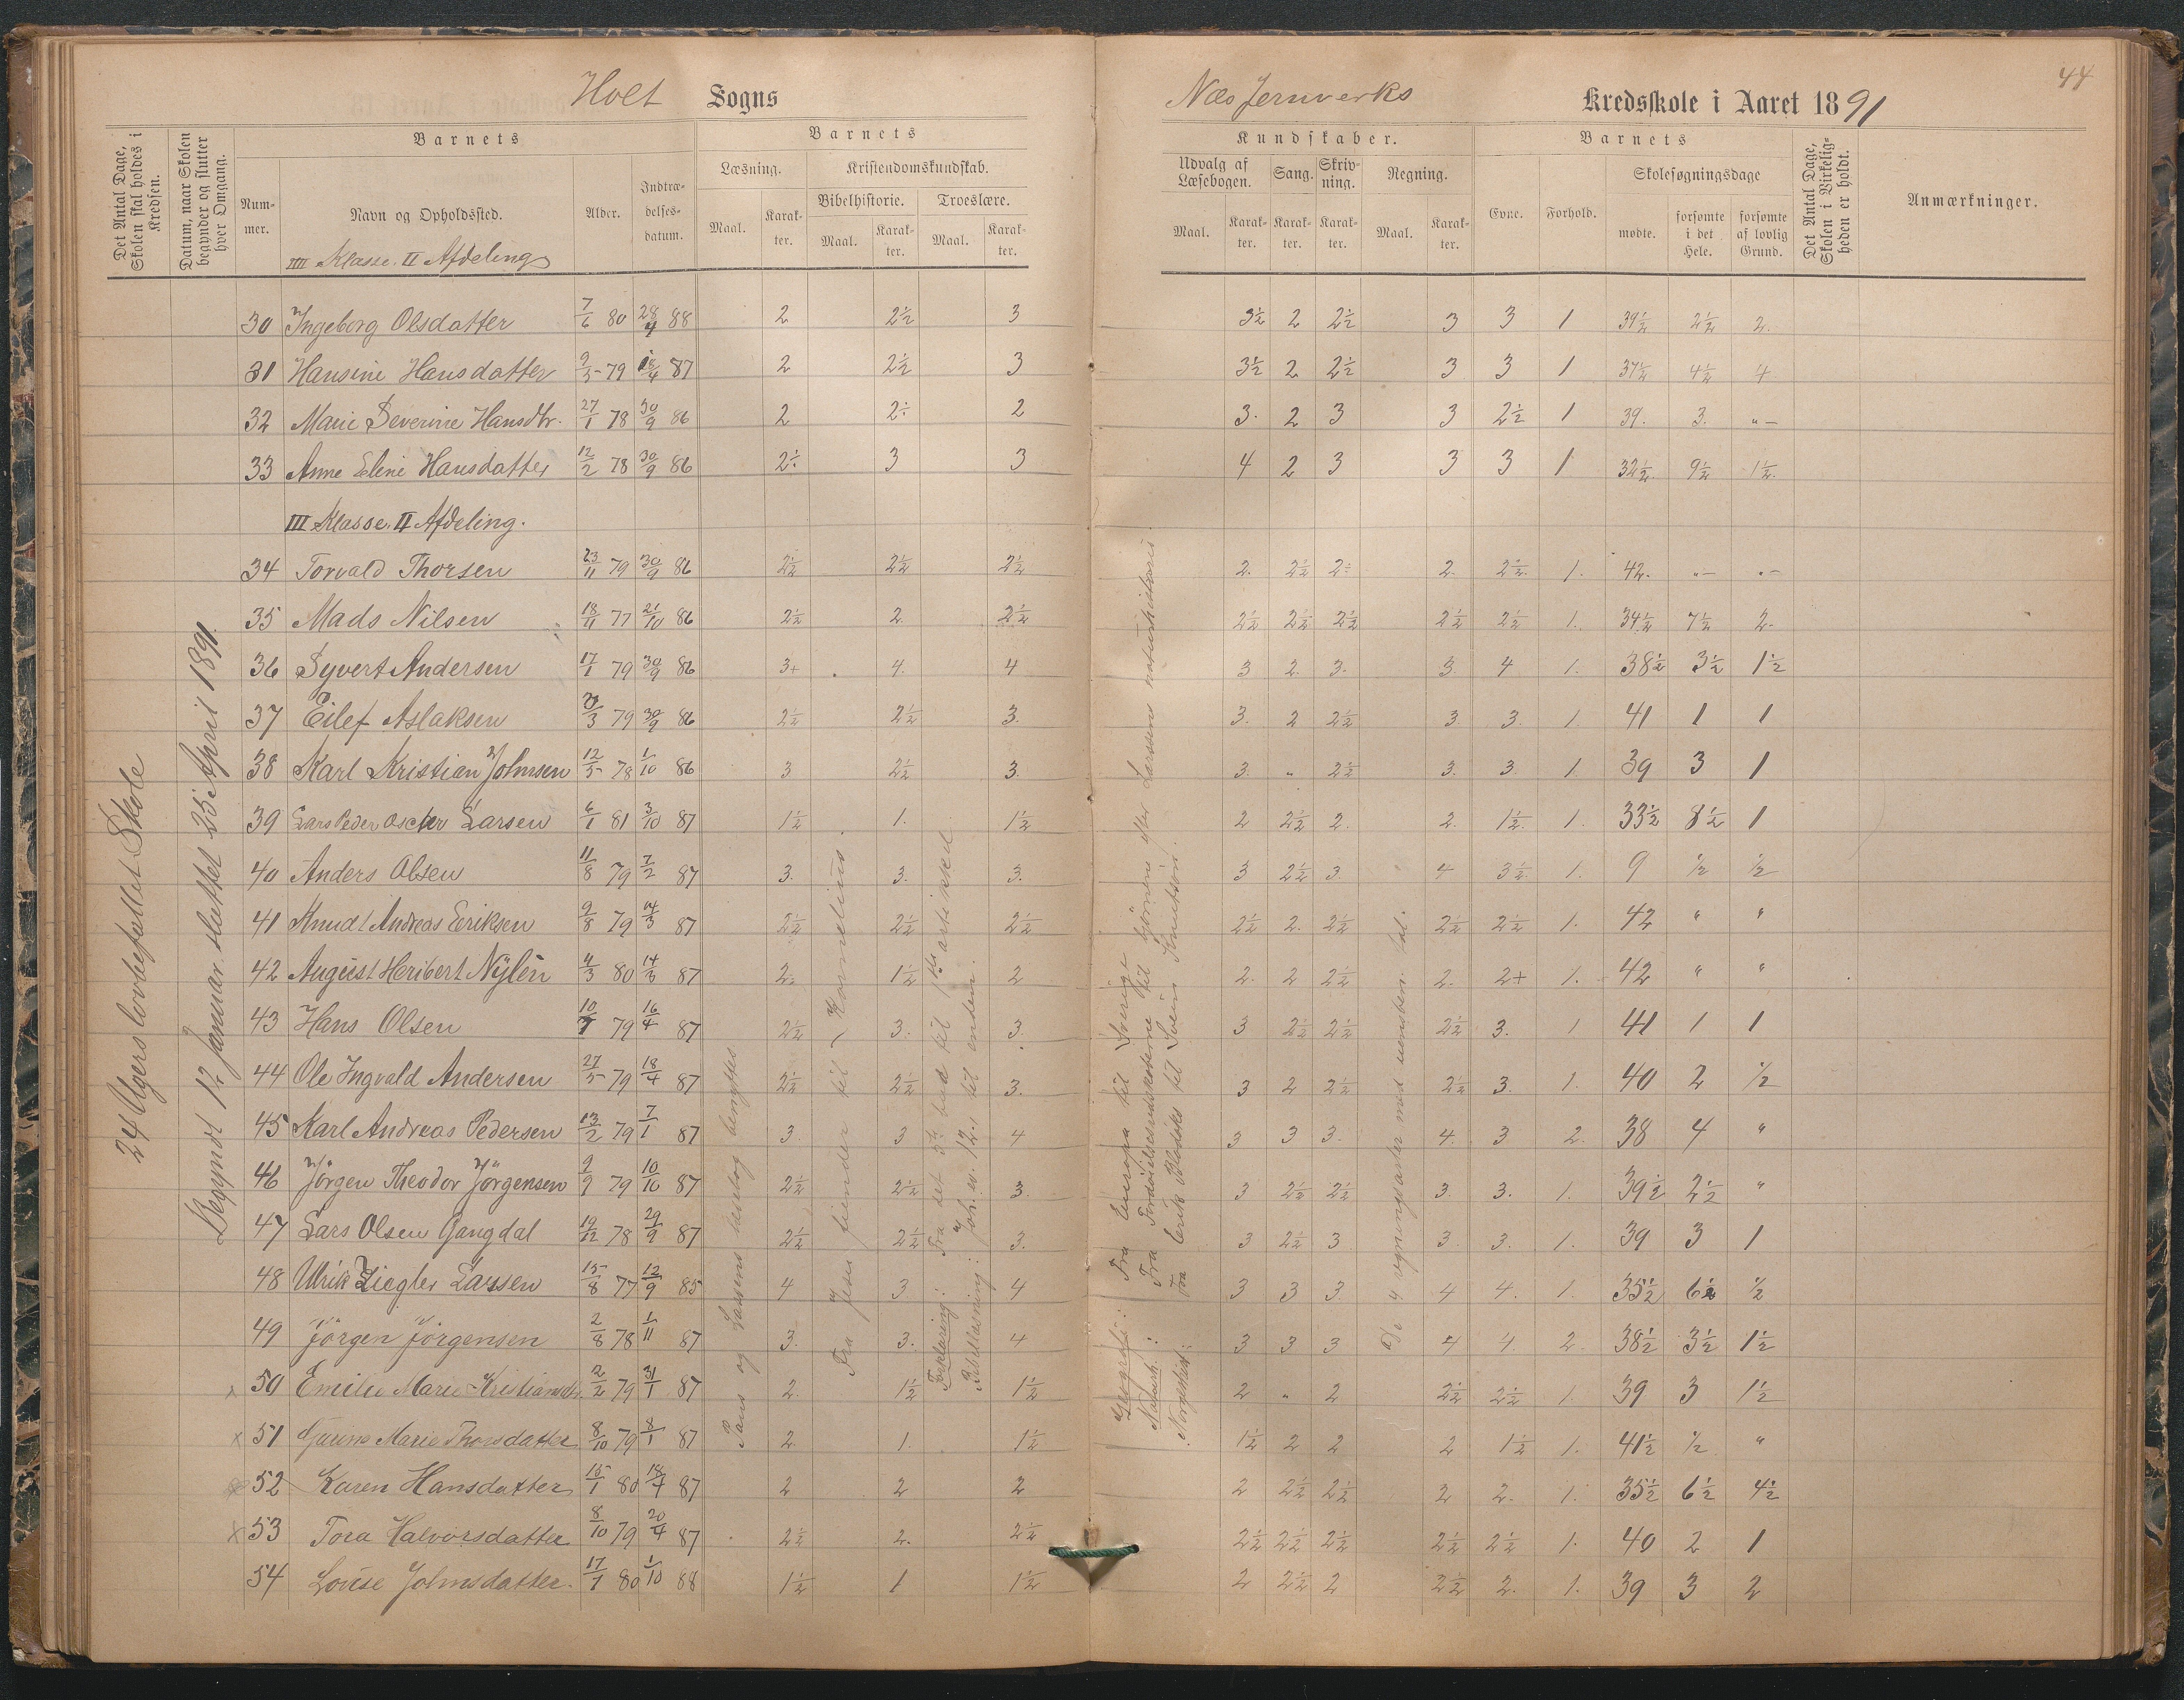 Holt Sogns
Næs Jernverks Kredsskole i Aaret 1891
44
Det Antal Dage, Skolen skal holdes i Kredsen.
Datum, naar Skolen begynder og slutter hver Omgang.
Barnets
Nummer.
Navn og Opholdssted.
Alder.
Indtrædelsesdatum.
Barnets
Læsning.
Maal.
Karakter.
Kristendomskundskab.
Bibelhistorie.
Maal.
Karakter.
Troeslære.
Maal.
Karakter.
Kundskaber.
Udvalg af Læsebogen.
Maal.
Karakter.
Sang.
Karakter.
Skrivning.
Karakter.
Regning.
Maal.
Karakter.
Barnets
Evne.
Forhold.
Skolesøgningsdage
mødte.
forsømte i det Hele.
forsømte af lovlig Grund.
Det Antal Dage, Skolen i Virkeligheden er holdt.
Anmærkninger.
IIII Klasse. II Afdeling
30 Ingeborg Olsdatter 7/6 80 28/4 88 2 2½ 3 3½ 2 2½ 3 3 1 39½ 2½ 2.
31 Hansine Hansdatter 9/5 79 18/4 87 2 2½ 3 3½ 2 2½ 3 3 1 37½ 4½ 4
32 Marie Severine Hansdtr. 27/1 78 30/9 86 2 2÷ 2 3. 2 3 3 2½ 1 39. 3. "–
33 Anne Eline Hansdatter 12/2 78 30/9 86 2÷ 3 3 4 2 3 3 3 1 32½ 9½ 1½.
III Klasse. II Afdeling.
34 Torvald Thorsen 23/11 79 30/9 86 2½ 2½ 2½ 2. 2½ 2÷ 2. 2½. 1. 42. "– "–
35 Mads Nilsen 18/11 77 21/10 86 2½ 2 2½ 2½ 2½ 2½ 2½ 2½ 1. 34½ 7½ 2.
36 Syvert Andersen 17/1 79 30/9 86 3+ 4. 4 3 2. 3. 3. 4 1. 38½ 3½ 1½
37 Eilef Aslaksen 79 30/9 86 2½ 2½ 3. 3. 2 2½ 3. 3. 1. 41 1 1
38 Karl Kristian Johnsen 12/5 78 1/10 86 3 2½ 3. 3. " 2½ 3. 3. 1. 39 3 1
39 Lars Peder Oscher Larsen 4/1 81 3/10 87 1½ 1. 1½ 2 2½ 2. 2. 1½. 1. 33½ 8½ 1
40 Anders Olsen 11/8 79 7/2 87 3. 3. 3. 3 2½ 3. 4 3½ 1. 9 ½ ½
41 Knudt Andreas Eriksen 9/8 79 14/3 87 2½ 2½ 2½ 2½ 2. 2½ 2½ 2½ 1. 42 " "
42 August Heribert Nylén 4/3 80 14/3 87 2. 1½ 2 2. 2 2½ 2. 2+ 1. 42 " "
43 Hans Olsen 79 16/4 87 2½ 3. 3. 3 2½ 2½ 2½ 3. 1 41 1 1
44 Ole Ingvald Andersen 27/5 79 18/4 87 2½ 2½ 3. 3 2 2½ 2½ 3. 1. 40 2 ½
45 Karl Andreas Pedersen 13/2 79 7/1 87 3. 3 4 3 3 3. 4. 3 2. 38 4 "
46 Jörgen Theodor Jörgensen 9/9 79 10/10 87 2½ 2½ 3. 3 2½ 2½ 3. 3. 1. 39½ 2½ "
47 Lars Olsen Gangdal 19/12 78 29/9 87 2½ 2½ 3. 3 2½ 3 3 3. 1. 39 3 1
48 Ulrik Ziegler Larsen 15/8 77 12/9 85 4 3 4 3 3 3. 4 4. 1. 35½ 6½ ½
49 Jörgen Jörgensen 2/8 78 1/11 87 3. 3. 4 3 3 3 4 4. 2. 38½ 3½ 1½
50 Emilie Marie Kristiansdtr. 2/2 79 31/1 87 2. 1½ 1½ 2 " 2 2½ 2½ 1. 39 3 1½
× 51 Gunne Marie Thorsdatter 8/10 79 8/1 87 2. 1. 1½ 1½ 2 2 2 1½ 1. 41½ ½ "
52 Karen Hansdatter 15/1 80 18/4 87 2 2 2 2 2½ 2½ 2 2. 1. 35½ 6½ 4½
× 53 Tora Halvorsdatter 8/10 79 20/4 87 2½ 2. 2½ 2½ 2½ 2½ 2½ 2½ 1. 40 2 1
54 Lovise Johnsdatter. 17/7 80 1/10 88 1½ 1 1½ 2 2½ 2 2½ 2. 1. 39 3 2
24 Ugers lovbefallet Skole
Begyndt 12 Januar. sluttet 25 April 1891.
Paus og Lassens læsebog benyttes
Fra Jesu fiender til Kornelius.
Forklaring: Fra det 5te bud til 1ste artikkel
Bibellæsning: Joh. ev. 12. til enden.
Geografi: Fra Europa til Sverige
Naturh.: Fra Fordøielsesredskaberne til hjörnene efter Larsens naturhistorie.
Norgeshist: Fra Erik Blodöks til Svein Knutsön.
De 4 regningsarter med uensben. tal.